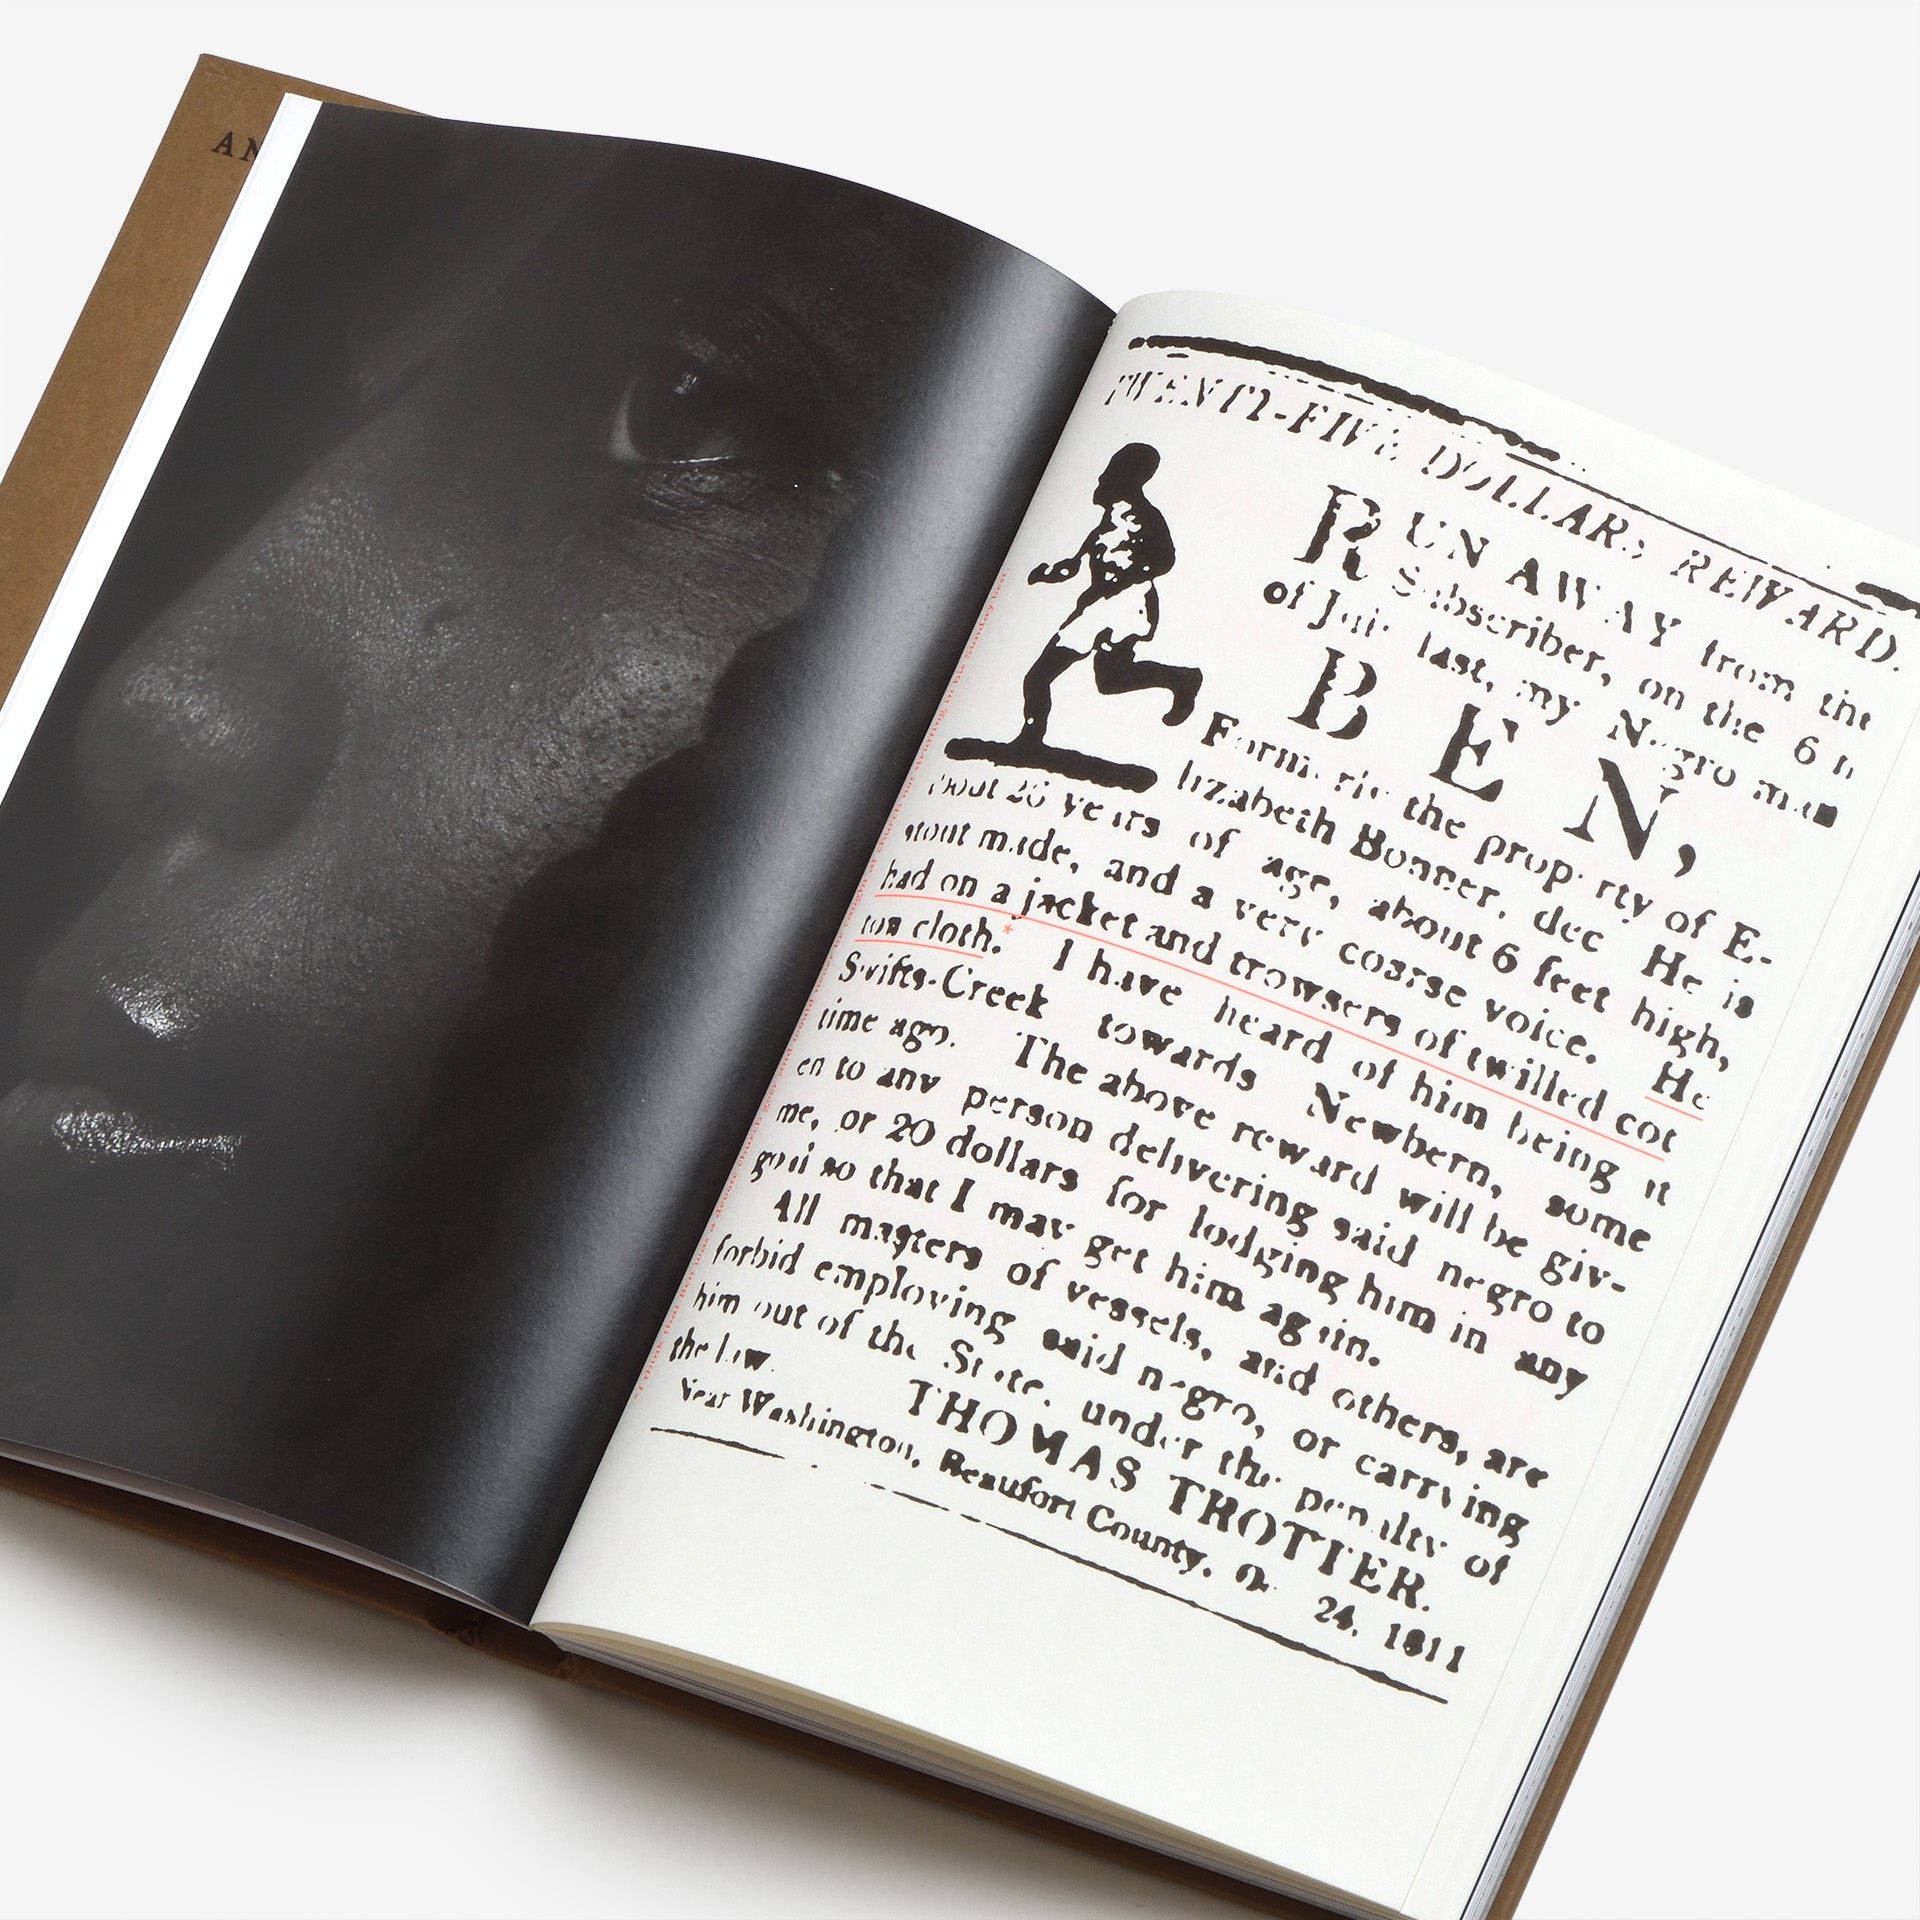 AN
TWENTY-FIVE DOLLARS REWARD.
RUN AWAY from the
Subscriber, on the 6 h
of July last, my Negro man
BEN,
Formerly the property of E-
lizabeth Bonner, dec He is
about 26 years of age, about 6 feet high,
stout made, and a very coarse voice. He
had on a jacket and trowsers of twilled cot
ton cloth.* I have heard of him being at
Swifts-Creek towards Newbern, some
time ago. The above reward will be giv-
en to any person delivering said negro to
me, or 20 dollars for lodging him in any
goal so that I may get him again.
All masters of vessels, and others, are
forbid employing said negro, or carrying
him out of the State, under the penalty of
the law.
THOMAS TROTTER.
Near Washington, Beaufort County, 24, 1811
*I think that Ben was a